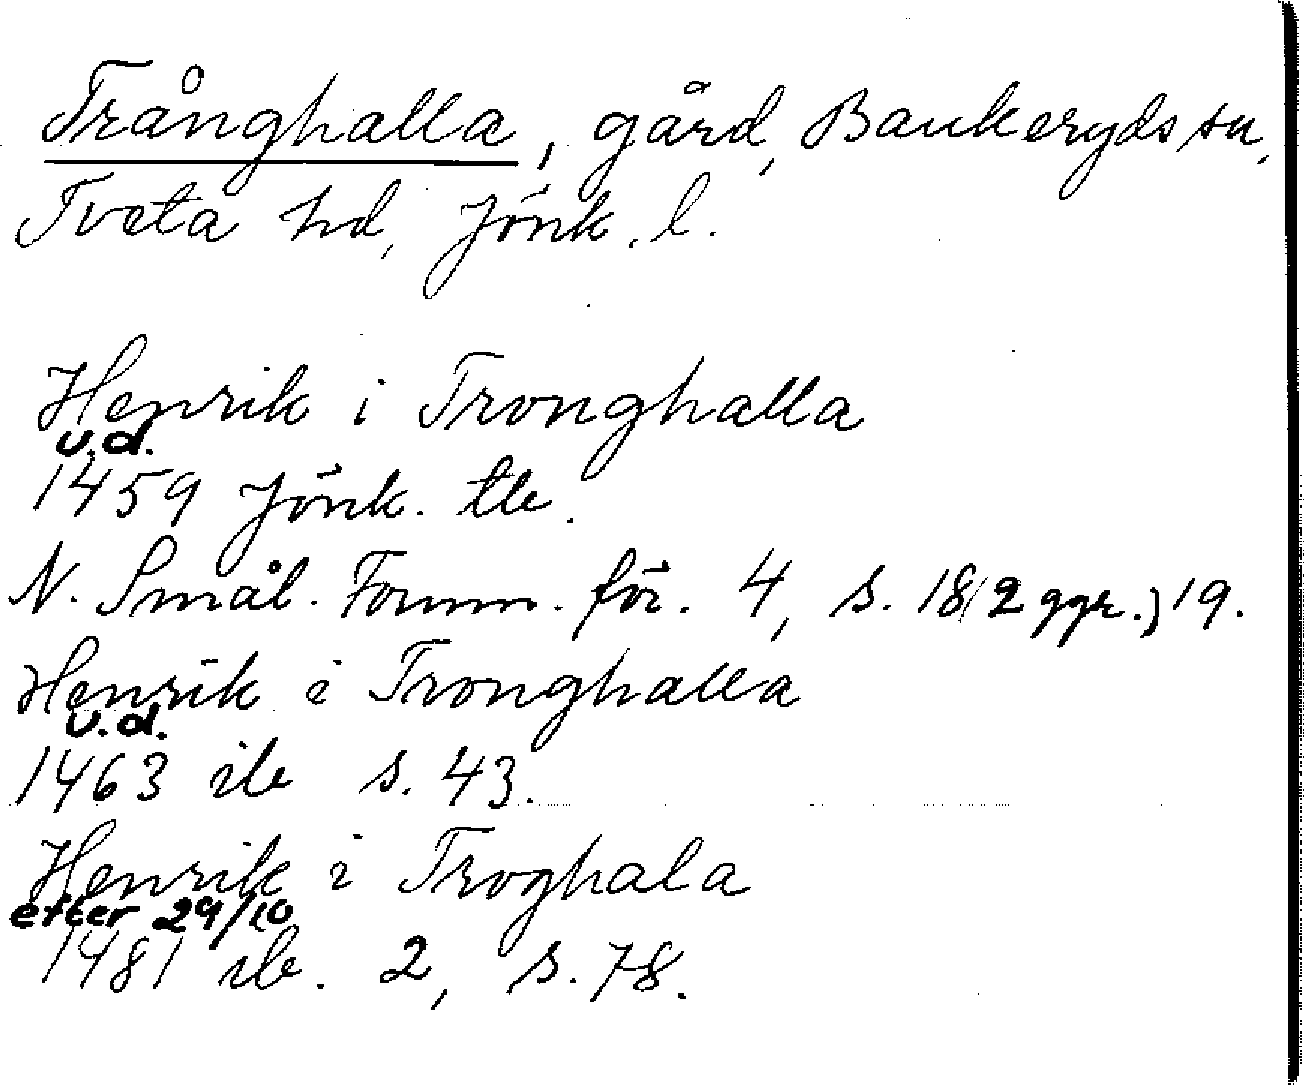 Trånghalla, gård, Bankeryds sn,
Tveta hd, Jönk. l.
Henrik i Tronghalla
u.d.
1459 Jönk. tb.
N. Smål. Fornm. för. 4, s. 18(2 ggr.) 19.
Henrik i Tronghalla
u.d.
1463 ib s. 43.
Henrik i Troghala
efter 29/10
1481 ib. 2, s. 78.